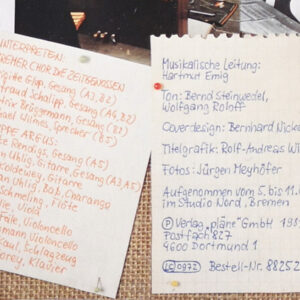 INTERPRETEN:
BREMER CHOR DIE ZEITGENOSSEN
Gesang (A3, B2)
Schalipp, Gesang (A6, B2)
Brüggemann, Gesang (B1)
Wilmes, Sprecher (B5)
GRUPPE ARGUS:
Rendigs, Gesang (A5)
Uhlig, Gitarre, Gesang (A3, A5)
Koldewey, Gitarre
Uhlig, Baß, Charango
Schmeling, Flöte
Viola
Violoncello
Violoncello
Kaul, Schlagzeug
Klavier
Musikalische Leitung:
Hartmut Emig
Ton: Bernd Steinwedel,
Wolfgang Roloff
Coverdesign: Bernhard Nicke
Titelgrafik: Rolf-Andreas Wi
Fotos: Jürgen Meyhöfer
Aufgenommen vom 5. bis 11.
im Studio Nord, Bremen
Ⓟ Verlag "pläne" GmbH 19
Postfach 827
4600 Dortmund 1
LC 0972 Bestell-Nr. 88252